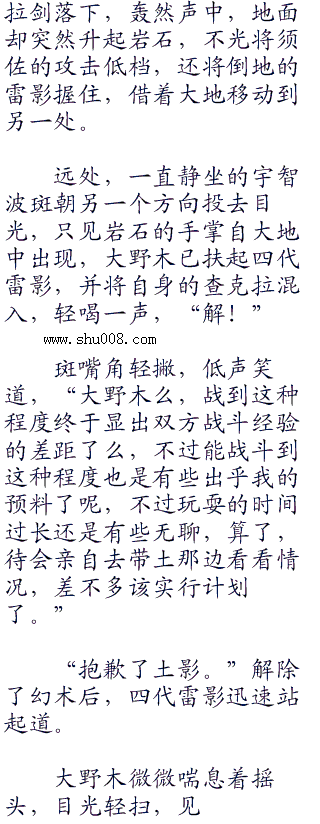 拉剑落下，轰然声中，地面
却突然升起岩石，不光将须
佐的攻击低档，还将倒地的
雷影握住，借着大地移动到
另一处。
远处，一直静坐的宇智
波斑朝另一个方向投去目
光，只见岩石的手掌自大地
中出现，大野木已扶起四代
雷影，并将自身的查克拉混
入，轻喝一声，“解！”
www.shu008.com
斑嘴角轻撇，低声笑
道，“大野木么，战到这种
程度终于显出双方战斗经验
的差距了么，不过能战斗到
这种程度也是有些出乎我的
预料了呢，不过玩耍的时间
过长还是有些无聊，算了，
待会亲自去带土那边看看情
况，差不多该实行计划
了。”
“抱歉了土影。”解除
了幻术后，四代雷影迅速站
起道。
大野木微微喘息着摇
头，目光轻扫，见